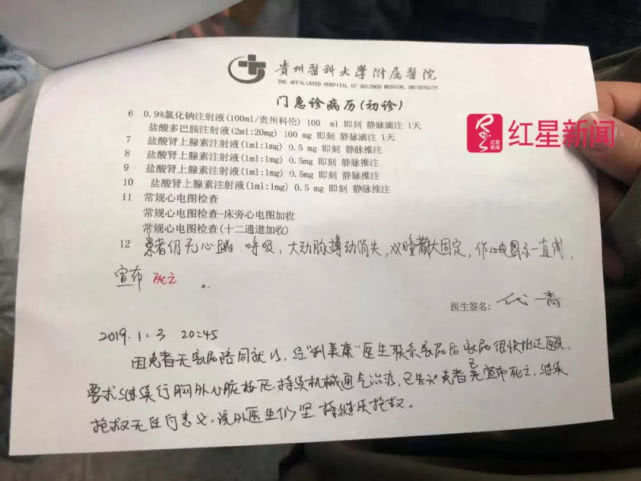 贵州醫科大學附属醫院
THE AFFILIATED HOSPITAL OF GUIZHOU MEDICAL UNIVERSITY
门急诊病历(初诊)
6 0.9%氯化钠注射液(100ml/贵州科伦) 100 ml 即刻 静脉滴注 1天
盐酸多巴胺注射液(2ml:20mg) 100 mg 即刻 静脉滴注 1天
7 盐酸肾上腺素注射液(1ml:1mg) 0.5 mg 即刻 静脉推注
8 盐酸肾上腺素注射液(1ml:1mg) 0.5mg 即刻 静脉推注
9 盐酸肾上腺素注射液(1ml:1mg) 0.5mg 即刻 静脉推注
10 盐酸肾上腺素注射液(1ml:1mg) 0.5 mg 即刻 静脉推注
11 常规心电图检查
常规心电图检查-床旁心电图加收
常规心电图检查(十二通道加收)
12 患者仍无心跳、呼吸,大动脉搏动消失,双瞳散大固定,作心电图示一直线,
宣布 死亡 。
医生签名:
2019.1.3 20:45
因患者无家属陪同就诊,经"利美康"医生联系家属后家属很快抵达医院,
要求继续行胸外心脏按压 持续机械通气治疗,已告知患者已宣布死亡,继续
抢救无任何意义,院外医生仍坚持继续抢救。
红星新闻